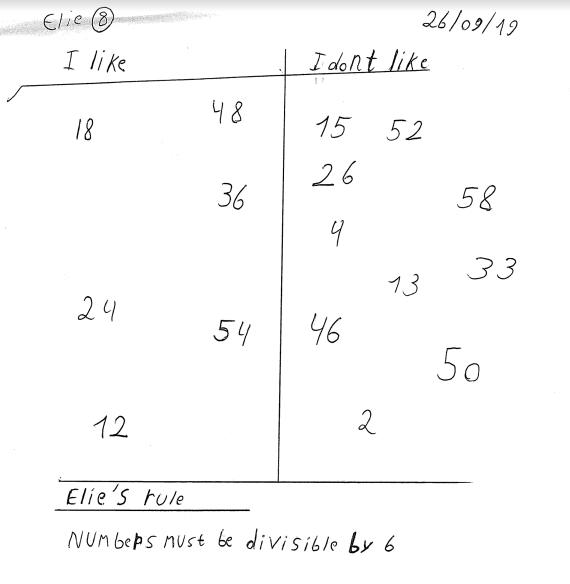 Elie 8 26/09/19
I like I dont like
18 48 15 52
26
36 58
4
33
13
24 54 46
50
12 2
Elie's rule
Numbers must be divisible by 6